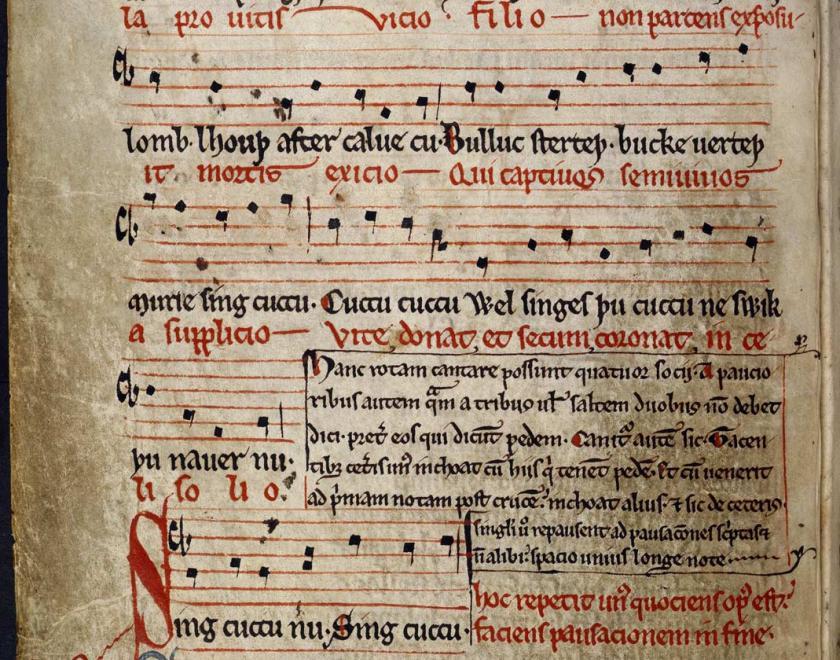 la pro uitis vicio · filio non parcens exposu
lomb · lhouþ after calue cu · Bulluc sterteþ · bucke uerteþ
it mortis exicio Qui captiuos semiuiuos
murie sing cuccu · Cuccu cuccu Wel singes þu cuccu ne swik
a supplicio Vite donat, et secum coronat, in ce
þu nauer nu ·
li so li o.
Hanc rotam cantare possunt quatuor socij · A paucio
ribus autem q̃m a tribus uł saltem duobus nō debet
dici · preť eos qui dicūt pedem · Caniť autē sic · Tacen
tibȝ ceťis un' inchoat cū hijs q' tenēt pedē · Et cū uenerit
ad p'mam notam post crucē: inchoat alius · ⁊ sic de ceteris ·
singli ũ repausent ad pausacōnes sc'ptas ⁊
ñ alibi: spacio unius longe note
Sing cuccu nu · Sing cuccu ·
hoc repetit un' quociens op' est:
faciens pausacionem in fine ·